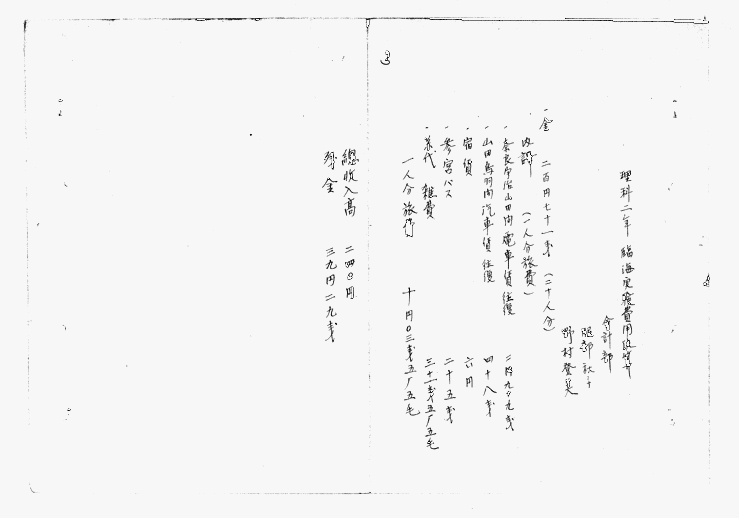 理科二年 臨海実験費用決算
会計部
服部 秋子
野村 登美
一、金 二百円七十一銭 (二十人分)
内訳 (一人分旅費)
一、奈良市 山田間 電車賃 往復 二円九九銭
一、山田 鳥羽間 汽車賃 往復 四十八銭
一、宿賃 六円
一、参宮バス 二十五銭
一、茶代 雑費 三十一銭五厘五毛
一人分 旅行 十円〇三銭五厘五毛
總收入高 二四〇円
残金 三九円二九銭